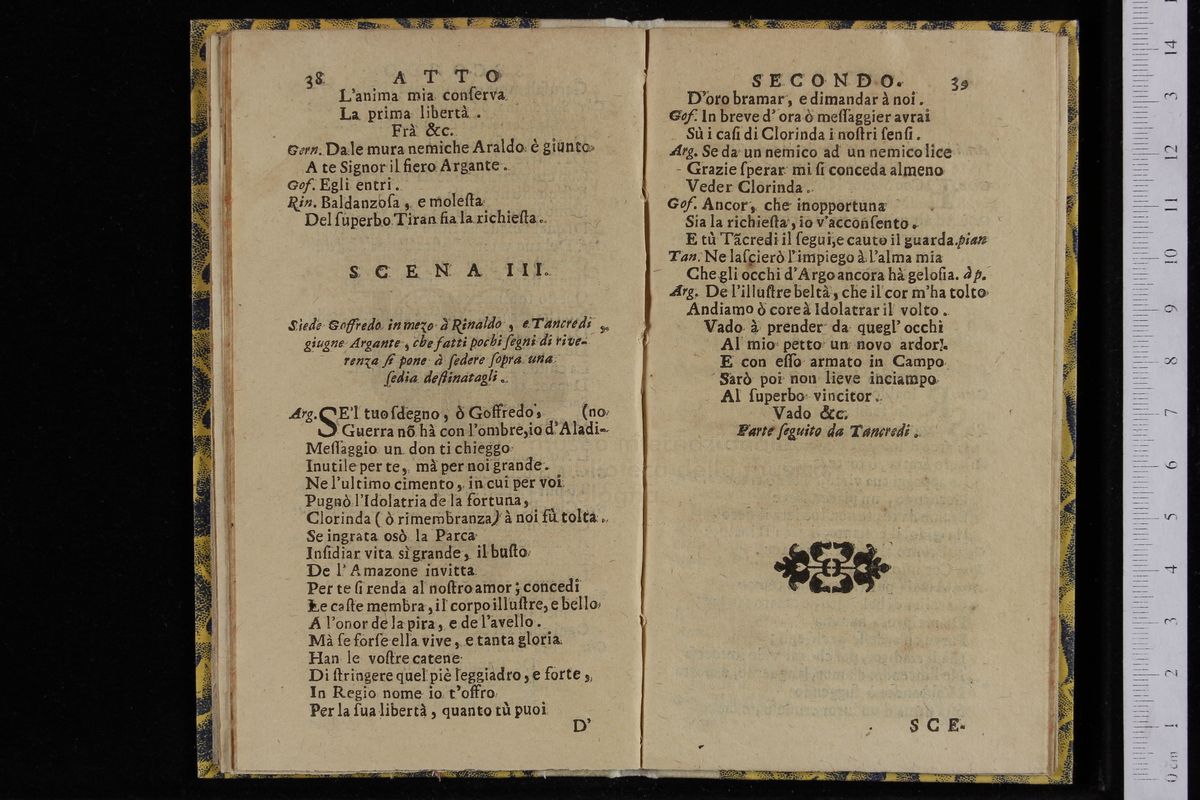 38 ATTO
L'anima mia conſerva
La prima libertà .
Frà &c.
Gern. Da le mura nemiche Araldo è giunto
A te Signor il fiero Argante .
Gof. Egli entri .
Rin. Baldanzoſa , e moleſta
Del ſuperbo Tiran ſia la richieſta .
SCENA III.
Siede Goffredo in mezo à Rinaldo , e Tancredi ,
giugne Argante , che fatti pochi ſegni di rive-
renza ſi pone à ſedere ſopra una
ſedia deſtinatagli .
Arg. SE'l tuo ſdegno , ò Goffredo , (no
Guerra nõ hà con l'ombre, io d'Aladi-
Meſſaggio un don ti chieggo
Inutile per te , mà per noi grande .
Ne l'ultimo cimento , in cui per voi
Pugnò l'Idolatria de la fortuna ,
Clorinda ( ò rimembranza) à noi fù tolta .
Se ingrata osò la Parca
Inſidiar vita sì grande , il buſto
De l'Amazone invitta
Per te ſi renda al noſtro amor ; concedi
Le caſte membra , il corpo illuſtre, e bello
A l'onor de la pira , e de l'avello .
Mà ſe forſe ella vive , e tanta gloria
Han le voſtre catene
Di ſtringere quel piè leggiadro , e forte ,
In Regio nome io t'offro
Per la ſua libertà , quanto tù puoi
D'
SECONDO. 39
D'oro bramar , e dimandar à noi .
Gof. In breve d'ora ò meſſaggier avrai
Sù i caſi di Clorinda i noſtri ſenſi .
Arg. Se da un nemico ad un nemico lice
Grazie ſperar mi ſi conceda almeno
Veder Clorinda .
Gof. Ancor , che inopportuna
Sia la richieſta , io v'acconſento .
E tù Tãcredi il ſegui, e cauto il guarda. pian
Tan. Ne laſcierò l'impiego à l'alma mia
Che gli occhi d'Argo ancora hà geloſia. à p.
Arg. De l'illuſtre beltà , che il cor m'ha tolto
Andiamo ò core à Idolatrar il volto .
Vado à prender da quegl' occhi
Al mio petto un novo ardor,
E con eſſo armato in Campo
Sarò poi non lieve inciampo
Al ſuperbo vincitor .
Vado &c.
Parte ſeguito da Tancredi .
SCE-
0 cm 1 2 3 4 5 6 7 8 9 10 11 12 13 14